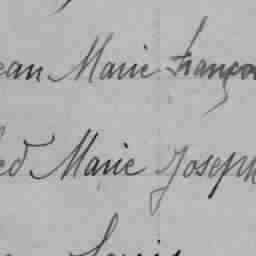 ean Marie Françoi
ed Marie Joseph
Louis